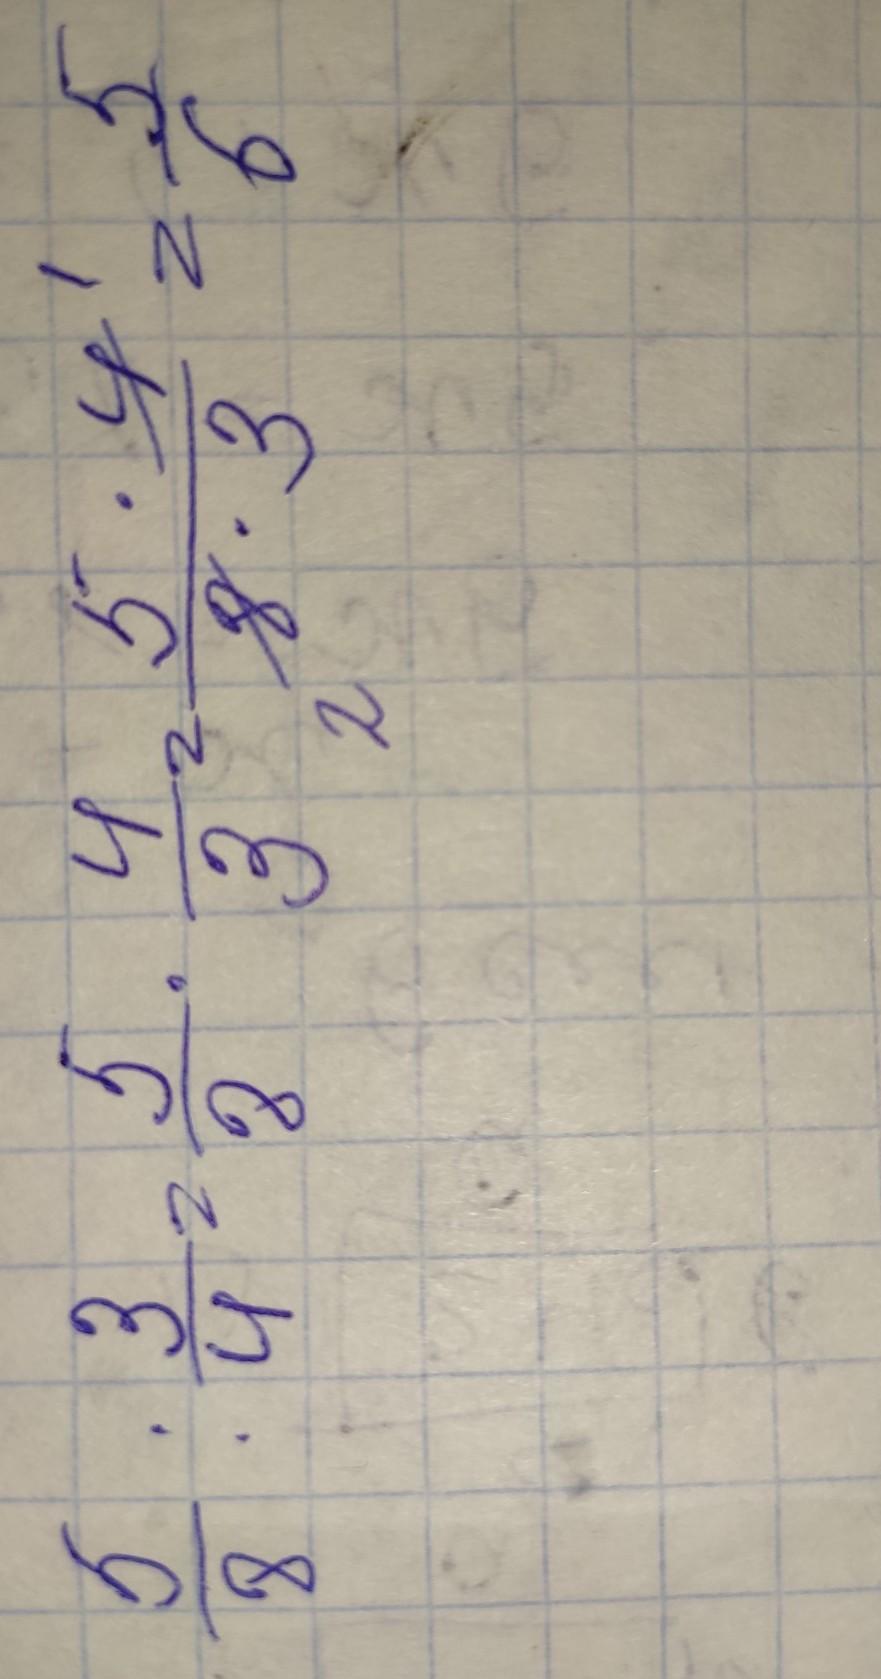 5/8 : 3/4 = 5/8 · 4/3 = 5 · 4 1 / 8 · 3 2 = 5/6